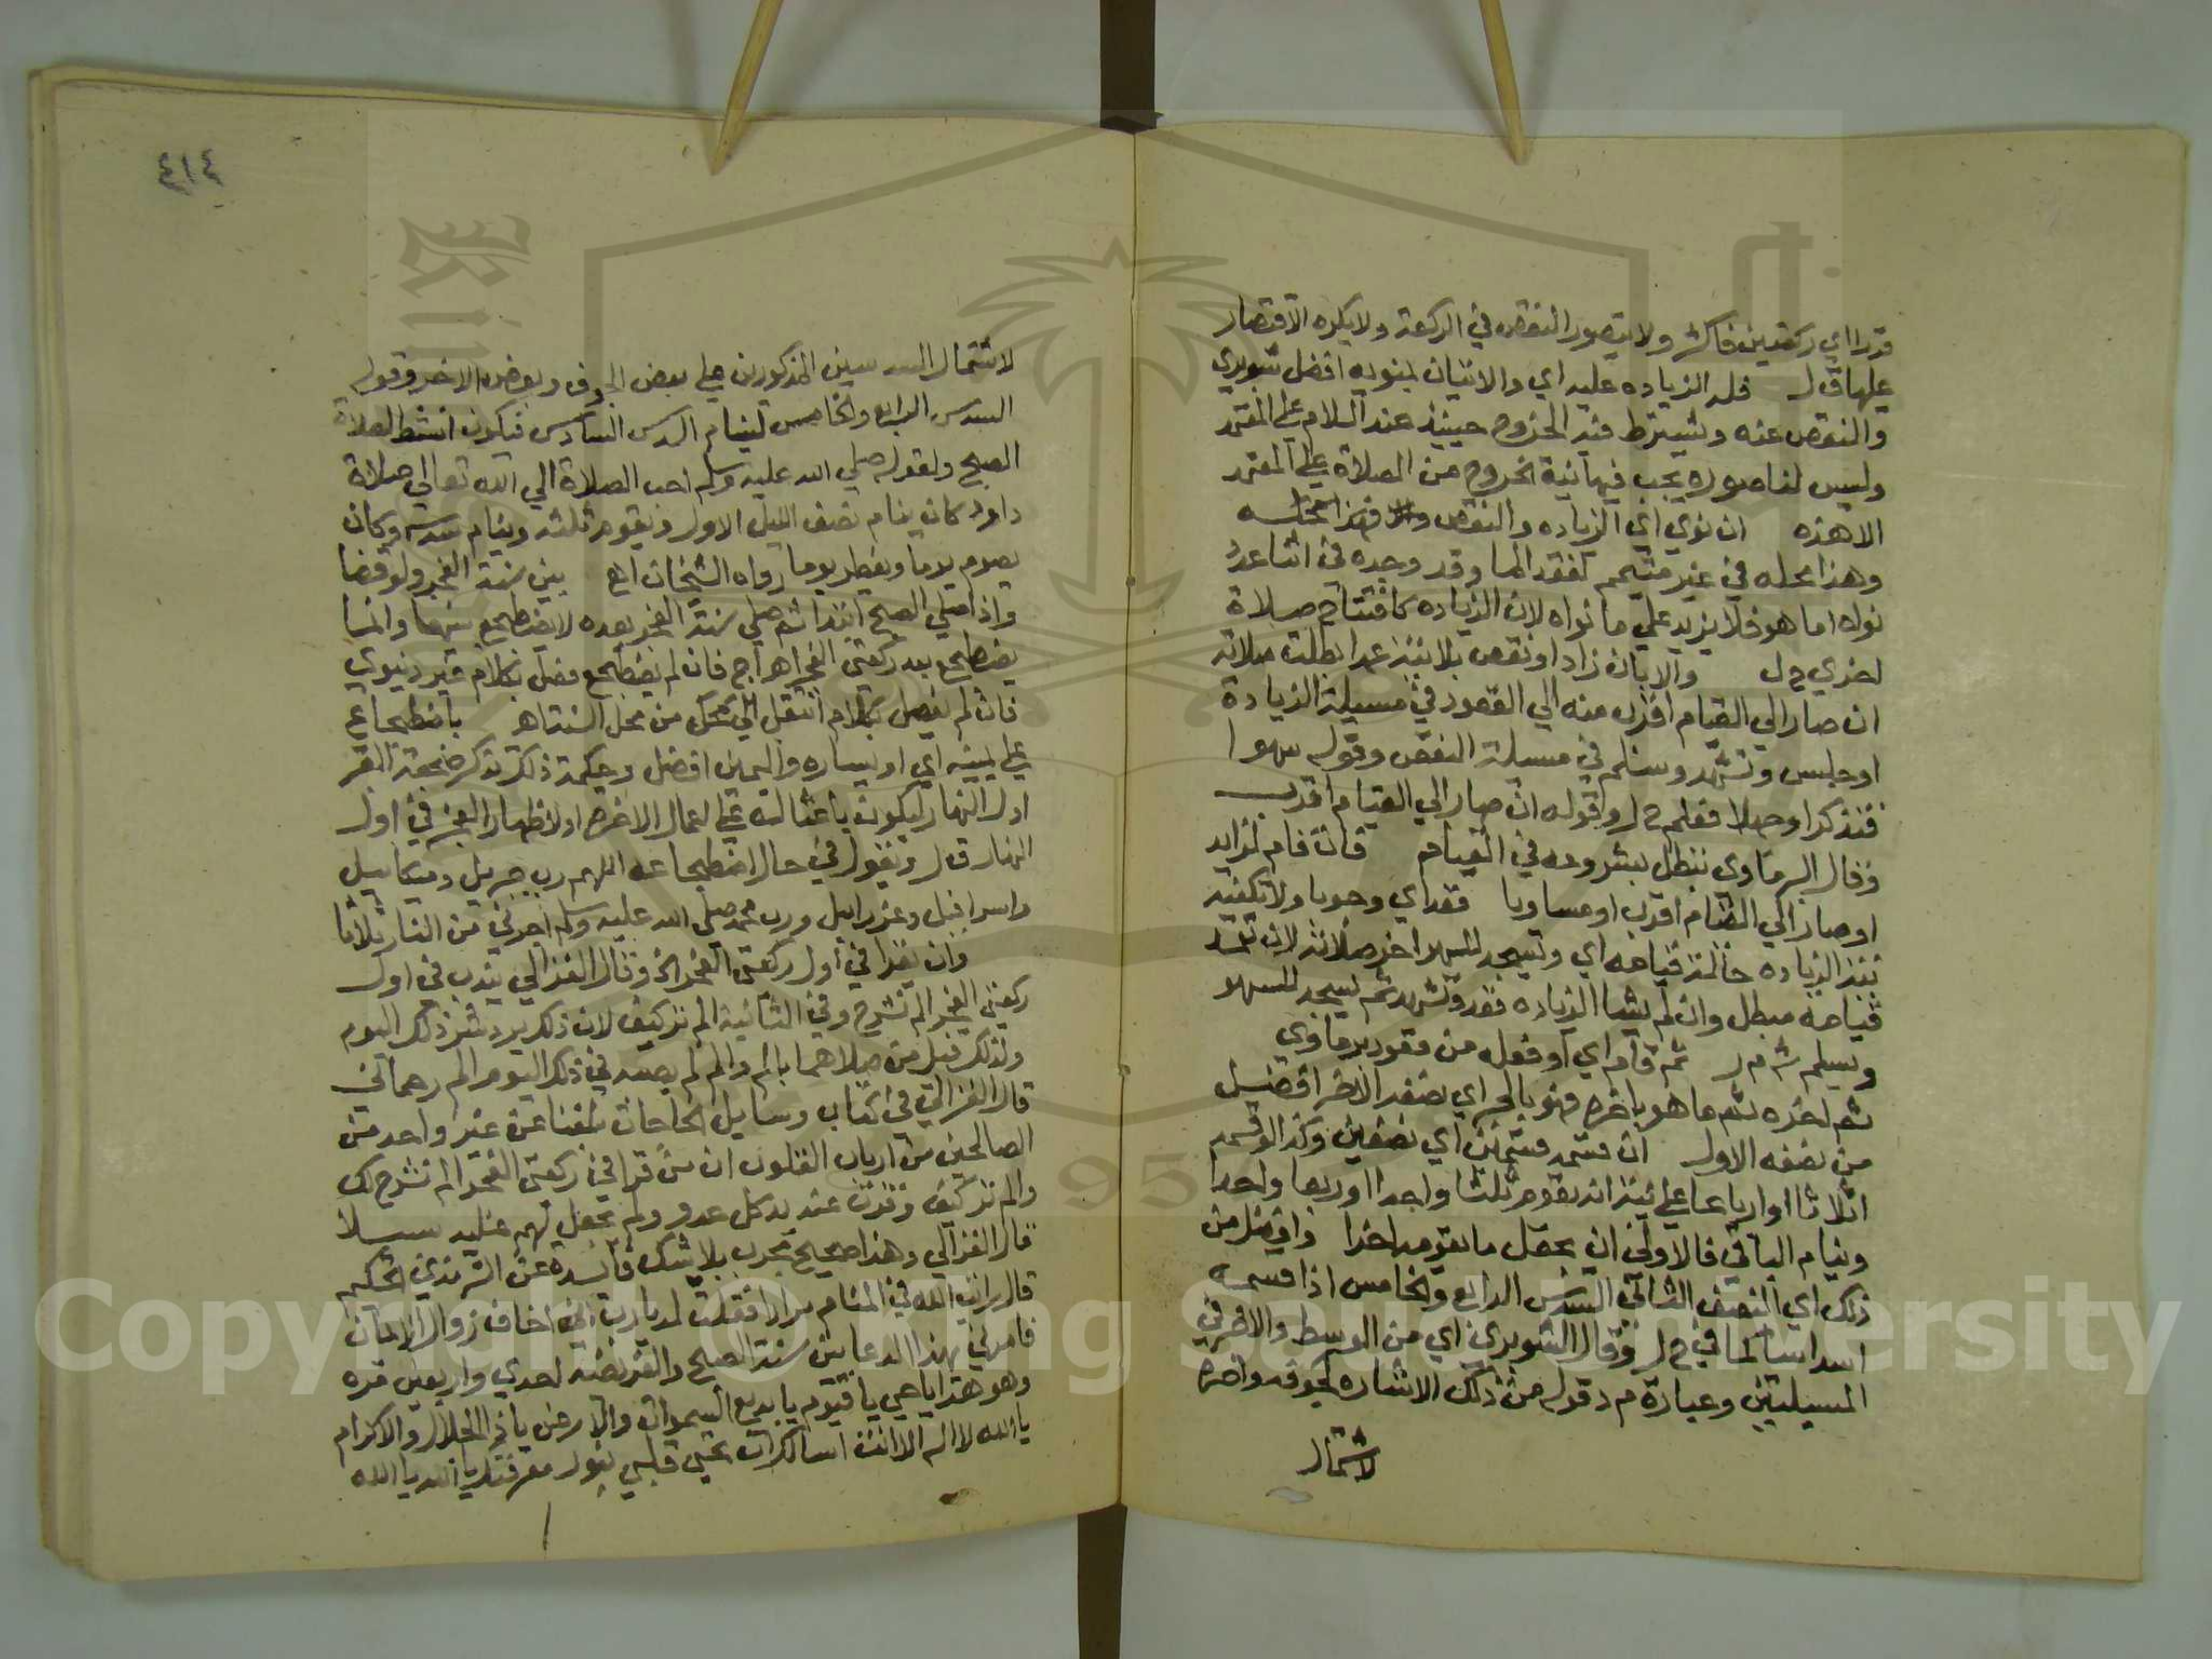 قدرا اي ركعتين فاكثر ولا يتصور النقص في الركعة ولا يكره الاقتصار
عليها ق ل فله الزياده عليه اي والاتيان بمنويه افضل شوبري
والنقص عنه ويشترط فيه الخروج حينئذ عند السلام على المعتمد
وليس لنا صوره يجب فيها نية الخروج من الصلاة على المعتمد
الا هذه ان نوي اي الزياده والنقص
وهذا محله في غير متيمم لفقد الما وقد وجده في اثنا عدد
نواه اما هو فلا يزيد علي ما نواه لان الزياده كافتتاح صلاة
اخري ح ل والا بان زاد او نقص بلا نية عمدا بطلت صلاته
ان صار الي القيام اقرب منه الي القعود في مسيلة الزيادة
او جلس وتشهد وسلم في مسيلة النقص وقوله سهوا
فتذكر او جهلا فعلم ح ل وقوله ان صار الي القيام اقرب
وقال البرماوي تبطل بشروعه في القيام فان قام لزايد
او صار الي القيام اقرب او مساويا قعد اي وجوبا ولا تكفيه
نية الزياده حالة قيامه اي ويسجد للسهو اخر صلاته لان تعمد
قيامه مبطل وان لم يشا الزياده قعد وتشهد ثم يسجد للسهو
ويسلم ش م ر ثم قام اي او فعله من قعود برماوي
ثم اخره ثم ما هو باخره فهو بالجر اي نصفه الاخر افضل
من نصفه الاول ان قسمه قسمين اي نصفين وكذا لو قسمه
اثلاثا او ارباعا علي نية انه يقوم ثلثا واحدا او ربعا واحدا
وينام الباقي فالاولي ان يجعل ما يقومه اخرا وافضل من
ذلك اي النصف الثاني السدس الرابع والخامس اذا قسمه
اسداسا لما في ح ل وقال الشوبري اي من الوسط والاخر في
المسيلتين وعبارة م د قوله من ذلك الاشاره لجوفه واخره
لاشتمال
٤١٤
لاشتمال السدسين المذكورين على بعض الجوف وبعض الاخر وقوله
السدس الرابع والخامس لينام السدس السادس فيكون انشط لصلاة
الصبح ولقوله صلي الله عليه وسلم احب الصلاة الي الله تعالي صلاة
داود كان ينام نصف الليل الاول ويقوم ثلثه وينام سدسه وكان
يصوم يوما ويفطر يوما رواه الشيخان اهـ بين سنة الفجر ولو قضا
واذا صلي الصبح ابتدا ثم صلي سنة الفجر بعده لا يضطجع بينهما وانما
يضطجع بعد ركعتي الفجر اهـ اج فان لم يضطجع فصل بكلام غير دنيوي
فان لم يفصل بكلام انتقل الي محل من محل السنة اهـ باضطجاع
علي يمينه اي او يساره واليمين افضل وحكمة ذلك تذكر ضجعة القبر
اول النهار ليكون باعثا له علي اعمال الاخره او لاظهار العجز في اول
النهار ق ل ويقول في حال اضطجاعه اللهم رب جبريل وميكاييل
واسرافيل وعزراييل ورب محمد صلي الله عليه وسلم اجرني من النار ثلاثا
وان يقرا في اول ركعتي الفجر الخ وقال الغزالي يندب في اول
ركعتي الفجر الم نشرح وفي الثانية الم تر كيف لان ذلك يرد شر ذلك اليوم
ولذلك قيل من صلاهما بالم والم لم يصبه في ذلك اليوم الم رحماني
قال الغزالي في كتاب وسايل الحاجات بلغنا عن غير واحد من
الصالحين من ارباب القلوب ان من قرا في ركعتي الفجر الم نشرح لك
والم تر كيف قصرت عنه يد كل عدو ولم يجعل لهم عليه سبيلا
قال الغزالي وهذا صحيح مجرب بلا شك فايدة عن الترمذي الحكيم
قال رايت الله في المنام مرارا فقلت له يا رب اني اخاف زوال الايمان
فامرني بهذا الدعا بين سنة الصبح والفريضه احدي واربعين مره
وهو هذا يا حي يا قيوم يا بديع السموات والارض يا ذا الجلال والاكرام
يا الله لا اله الا انت اسالك ان تحيي قلبي بنور معرفتك يا الله يا الله